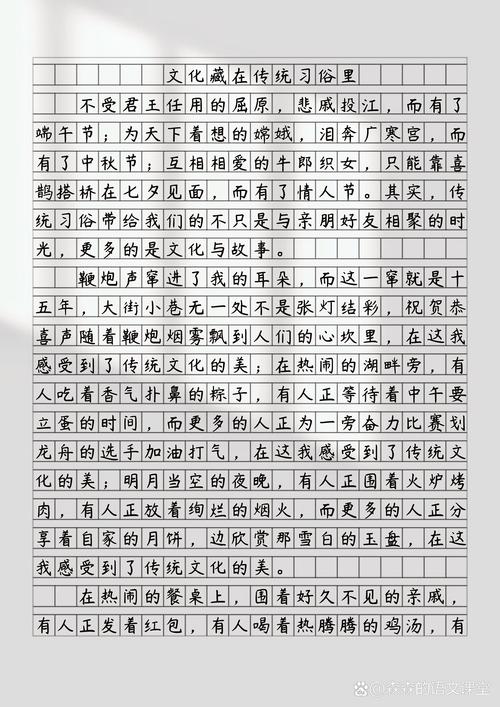 文化藏在传统习俗里
不受君王任用的屈原，悲戚投江，而有了
端午节；为天下着想的嫦娥，泪奔广寒宫，而
有了中秋节；互相相爱的牛郎织女，只能靠喜
鹊搭桥在七夕见面，而有了情人节。其实，传
统习俗带给我们的不只是与亲朋好友相聚的时
光，更多的是文化与故事。
鞭炮声窜进了我的耳朵，而这一窜就是十
五年，大街小巷无一处不是张灯结彩，祝贺恭
喜声随着鞭炮烟雾飘到人们的心坎里，在这我
感受到了传统文化的美；在热闹的湖畔旁，有
人吃着香气扑鼻的粽子，有人正等待着中午要
立蛋的时间，而更多的人正为一旁奋力比赛划
龙舟的选手加油打气，在这我感受到了传统文
化的美；明月当空的夜晚，有人正围着火炉烤
肉，有人正放着绚烂的烟火，而更多的人正分
享着自家的月饼，边欣赏那雪白的玉盘，在这
我感受到了传统文化的美。
在热闹的餐桌上，围着好久不见的亲戚，
有人正发着红包，有人喝着热腾腾的鸡汤，有
@森森的语文课堂